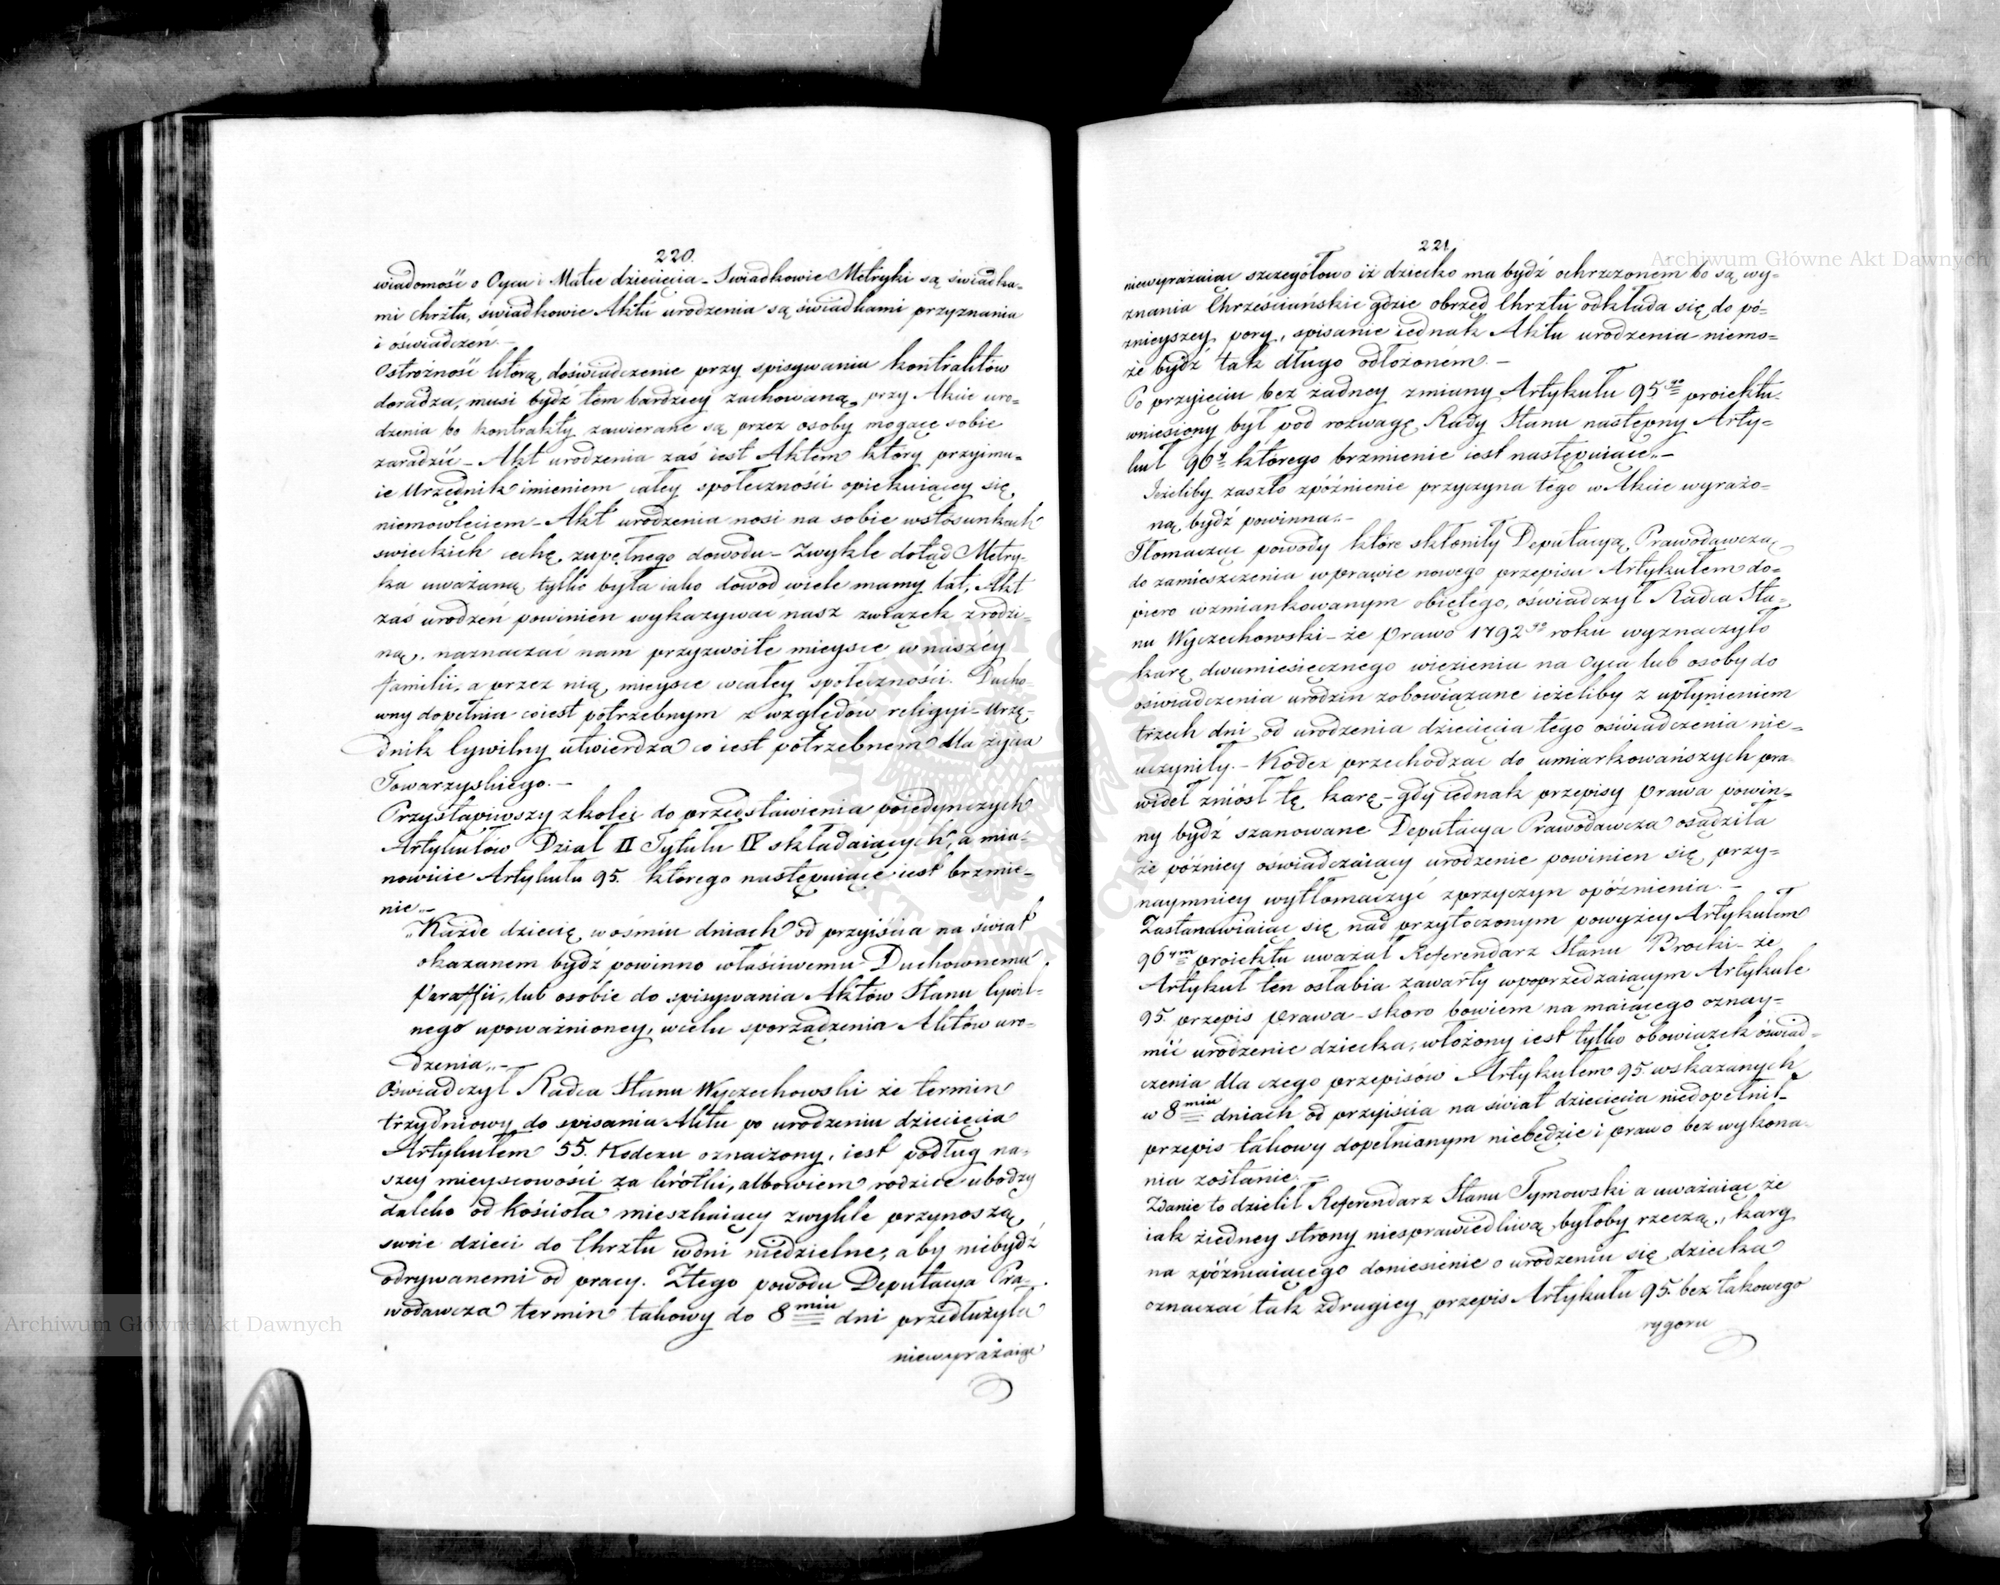 220.
wiadomość o Oycu i Matce dziecięcia – Swiadkowie Metryki są świadka-
mi chrztu, świadkowie Aktu urodzenia są świadkami przyznania
i oświadczeń. –
Ostrożność którą doświadczenie przy spisywaniu kontraktów
doradza, musi bydź tem bardziey zachowaną, przy Akcie uro-
dzenia bo kontrakty zawierane są przez osoby mogące sobie
zaradzić – Akt urodzenia zaś iest Aktem który przyimu-
ie Urzędnik imieniem całey społeczności opiekuiącey się
niemowlęciem – Akt urodzenia nosi na sobie wstosunkach
swieckich cechę zupełnego dowodu – Zwykle dotąd Metry-
ka uważaną tylko była iako dowód wiele mamy lat, Akt
zaś urodzeń powinien wykazywać nasz związek zrodzi-
ną, naznaczać nam przyzwoite mieysce wnaszéy
familii, a przez nią mieysce wcałey społeczności. Ducho
wny dopełnia co iest potrzebnym z względów religyi – Urzę-
dnik Cywilny utwierdza co iest potrzebnem dla życia
Towarzyskiego. –
Przystąpiwszy zkolei do przedstawienia poiedynczych
Artykułów Dział II Tytułu IV składaiących, a mia-
nowicie Artykułu 95. którego następuiące iest brzmie-
nie „–
„Każde dziecię wośmiu dniach od przyiścia na świat
okazanem bydź powinno właściwemu Duchownemu
Paraffii, lub osobie do spisywania Aktów Stanu Cywil-
nego upoważnioney, wcelu sporządzenia Aktów uro-
dzenia „–
Oświadczył Radca Stanu Wyczechowski że termin
trzydniowy do spisania Aktu po urodzeniu dziecięcia
Artykułem 55. Kodexu oznaczony, iest podług na-
szey mieyscowości za krótki, albowiem rodzice ubodzy
daleko od kościoła mieszkaiący zwykle przynoszą
swoie dzieci do Chrztu wdni niedzielne, aby niebydź
odrywanemi od pracy. Ztego powodu Deputacya Pra-
wodawcza termin takowy do 8miu dni przedłużyła
niewyrażaiąc
221.
niewyrażaiąc szczegółowo iż dziecko ma bydź ochrzczonem bo są wy-
znania Chrześciańskie gdzie obrzęd Chrztu odkłada się do pó-
znieyszey pory, spisanie iednak Aktu urodzenia niemo-
że bydź tak długo odłożoném. –
Po przyięciu bez żadney zmiany Artykułu 95go proiektu
wniesiony był pod rozwagę Rady Stanu następny Arty-
kuł 96y którego brzmienie iest następuiące „–
Jeżeliby zaszło zpóźnienie przyczyna tego w Akcie wyrażo-
ną bydź powinna „–
Tłomacząc powody które skłoniły Deputacyą Prawodawczą
do zamieszczenia wprawie nowego przepisu Artykułem do-
piero wzmiankowanym obiętego, oświadczył Radca Sta-
nu Wyczechowski – że Prawo 1792go roku wyznaczyło
karę dwumiesięcznego więzienia na Oyca lub osoby do
oświadczenia urodzin zobowiązane ieżeliby z upłynieniem
trzech dni od urodzenia dziecięcia tego oświadczenia nie-
uczyniły. – Kodex przechodząc do umiarkowańszych pra
wideł zniósł tę karę – gdy iednak przepisy Prawa powin-
ny bydź szanowane Deputacya Prawodawcza osądziła
że późniey oświadczaiący urodzenie powinien się przy-
naymniey wytłomaczyć zprzyczyn opóźnienia. –
Zastanawiaiąc się nad przytoczonym powyżey Artykułem
96ym proiektu uważał Referendarz Stanu Brocki – że
Artykuł ten osłabia zawarty wpoprzedzaiącym Artykule
95. przepis Prawa – skoro bowiem na maiącego oznay-
mić urodzenie dziecka, włożony iest tylko obowiązek oświad-
czenia dla czego przepisów Artykułem 95. wskazanych
w 8miu dniach od przyiścia na świat dziecięcia niedopełnił
przepis takowy dopełnianym niebędzie i prawo bez wykona-
nia zostanie. –
Zdanie to dzielił Referendarz Stanu Tymowski a uważaiąc że
iak ziedney strony niesprawiedliwą byłoby rzeczą, karę
na zpózniaiącego doniesienie o urodzeniu się dziecka
oznaczać tak zdrugiey przepis Artykułu 95. bez takowego
rygoru
Archiwum Główne Akt Dawnych
Archiwum Główne Akt Dawnych